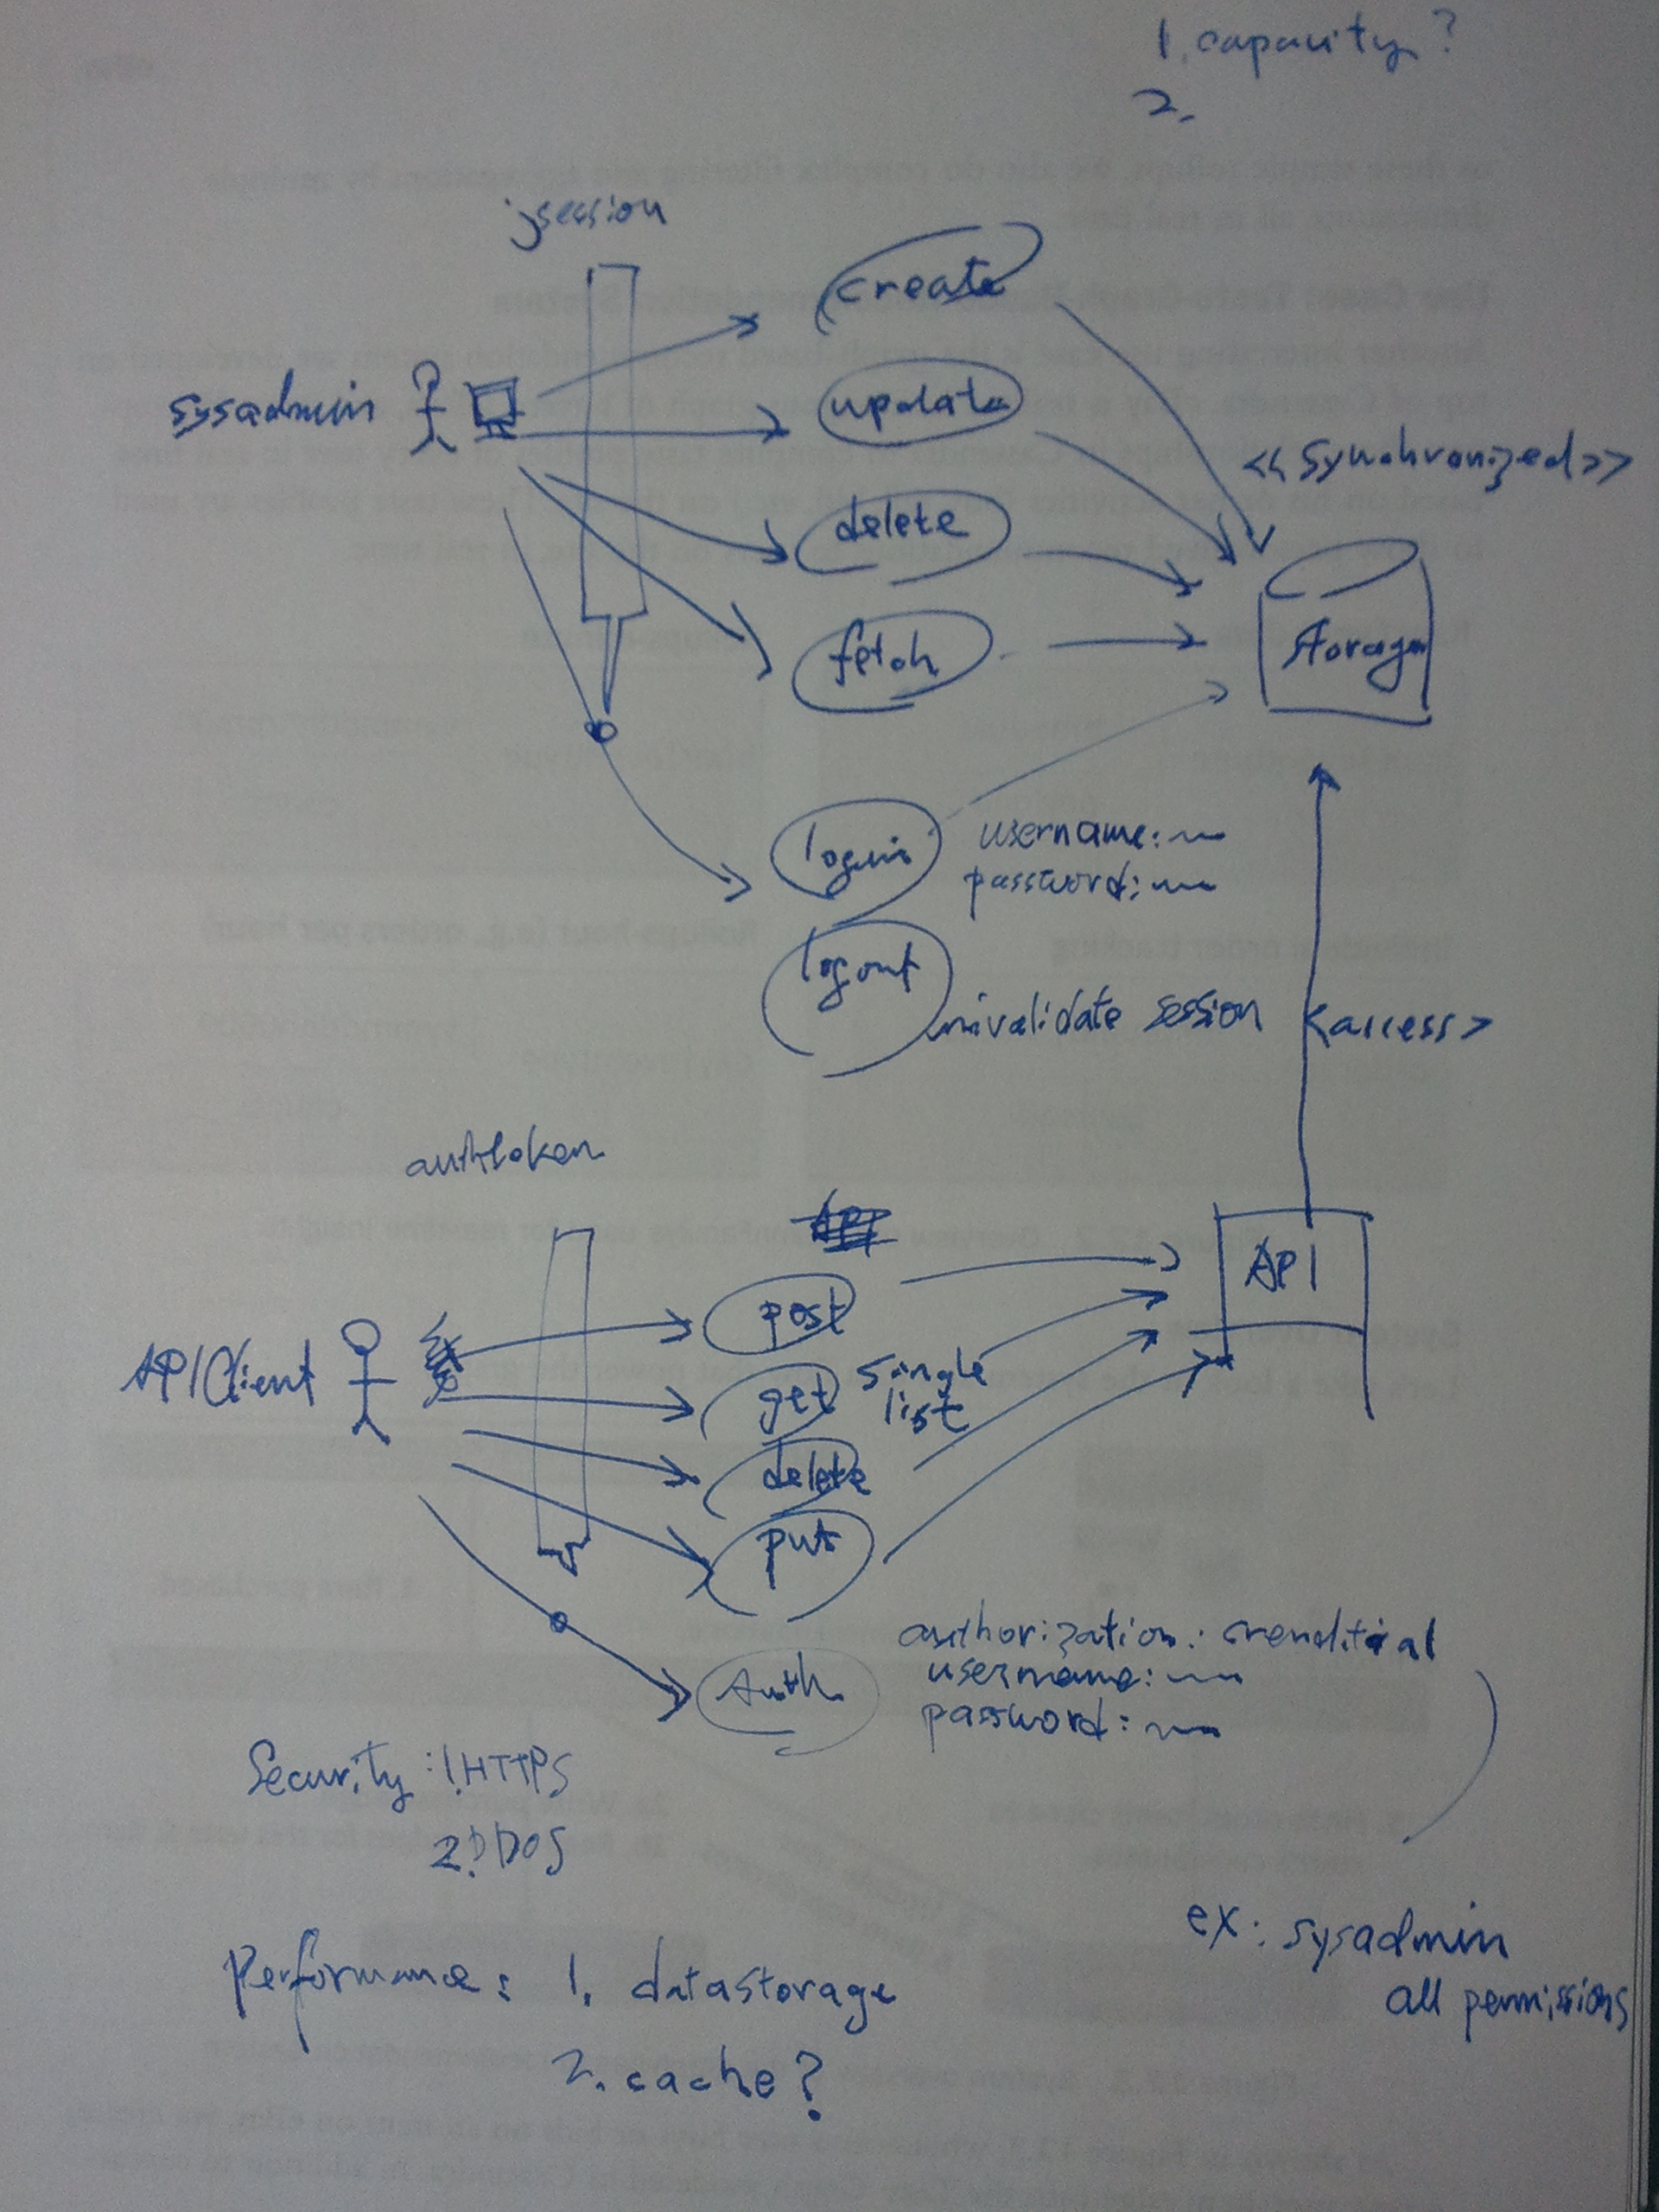 1. capacity?
2.
jsession
create
sysadmin
update
<<synchronized>>
delete
fetch
storage
login
username:
password:
logout
invalidate session
<access>
authtoken
API
post
API
APIClient
get
single
list
delete
put
authorization: crenditial
username:
Auth
password:
Security: 1. HTTPS
2. DDOS
ex: sysadmin
all permissions
Performance: 1. datastorage
2. cache?